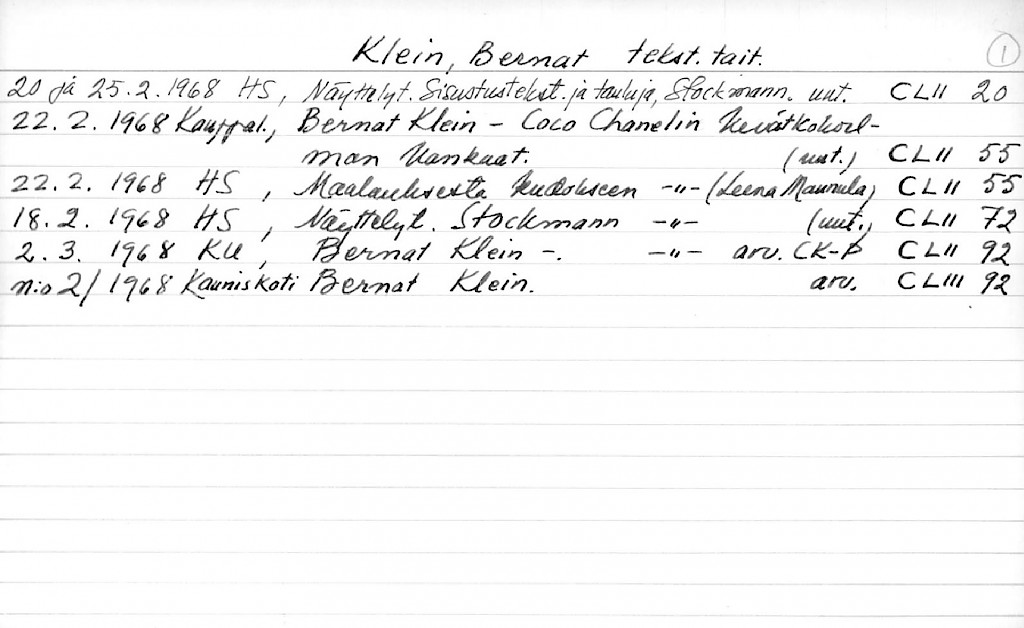 Klein, Bernat tekst. tait. 1
20 ja 25.2.1968 HS, Näyttelyt. Sisustustekst. ja tauluja, Stockmann. uut. CLII 20
22.2.1968 Kauppal., Bernat Klein - Coco Chanelin kevätkokoel-
man kankaat. (uut.) CLII 55
22.2. 1968 HS, Maalauksesta kudokseen -"- (Leena Maunula) CLII 55
18.2. 1968 HS, Näyttelyt. Stockmann -"- (uut.) CLII 72
2.3. 1968 KU, Bernat Klein -. -"- arv. CK-P CLII 92
n:o 2/1968 Kauniskoti Bernat Klein. arv. CLIII 92